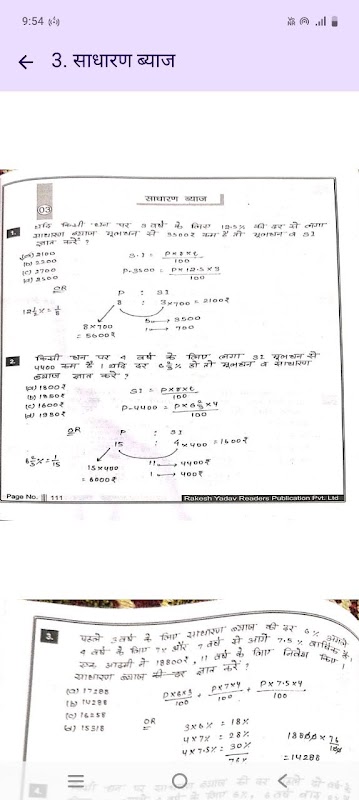 9:54
← 3. साधारण ब्याज
साधारण ब्याज
03
1. यदि किसी धन पर 3 वर्ष के लिए 12.5% की दर से लगा
साधारण ब्याज मूलधन से 3500₹ कम है तो मूलधन व SI
ज्ञात करें ?
(a) 2100
(b) 2300
(c) 2700
(d) 2500
S.I = P×R×t / 100
P-3500 = P×12.5×3 / 100
OR
P : SI
12½% = 1/8
8 : 3 ×700 = 2100₹
5 → 3500
1 → 700
8×700
= 5600₹
2. किसी धन पर 4 वर्ष के लिए लगा SI मूलधन से
4400 कम है । यदि दर 6⅔% हो तो मूलधन व साधारण
ब्याज ज्ञात करें ?
(a) 1800₹
(c) 1600₹
SI = P×R×t / 100
P-4400 = P×6⅔×4 / 100
OR
P : SI
15 : 4 ×400 = 1600₹
6⅔% = 1/15
11 → 4400₹
1 → 400₹
15×400
= 6000₹
Page No. 111
Rakesh Yadav Readers Publication Pvt. Ltd
3. पहले 3 वर्ष के लिए साधारण ब्याज की दर 6% अगले
4 वर्ष के लिए 7% और 7 वर्ष से आगे 7.5% वार्षिक है।
एक आदमी ने 18800₹, 11 वर्ष के लिए निवेश किए ।
साधारण ब्याज की दर ज्ञात करें ?
(a) 17288
(b) 14288
(c) 16258
(d) 15318
P×6×3 / 100 + P×7×4 / 100 + P×7.5×4 / 100
OR
3×6% = 18%
4×7% = 28%
4×7.5% = 30%
76%
18800×76 / 100
= 14288
4.